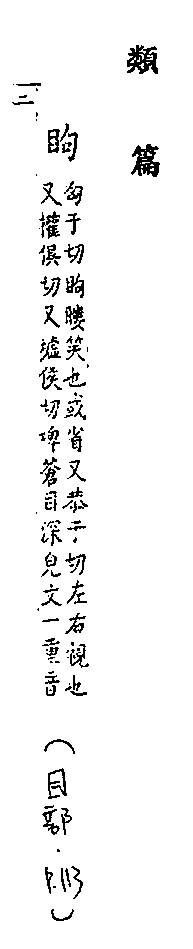 類篇
眗
匈于切眗䁖笑也或省又恭于切左右視也
又權俱切又墟侯切埤蒼目深皃文一重音
三
(目部.P.113)